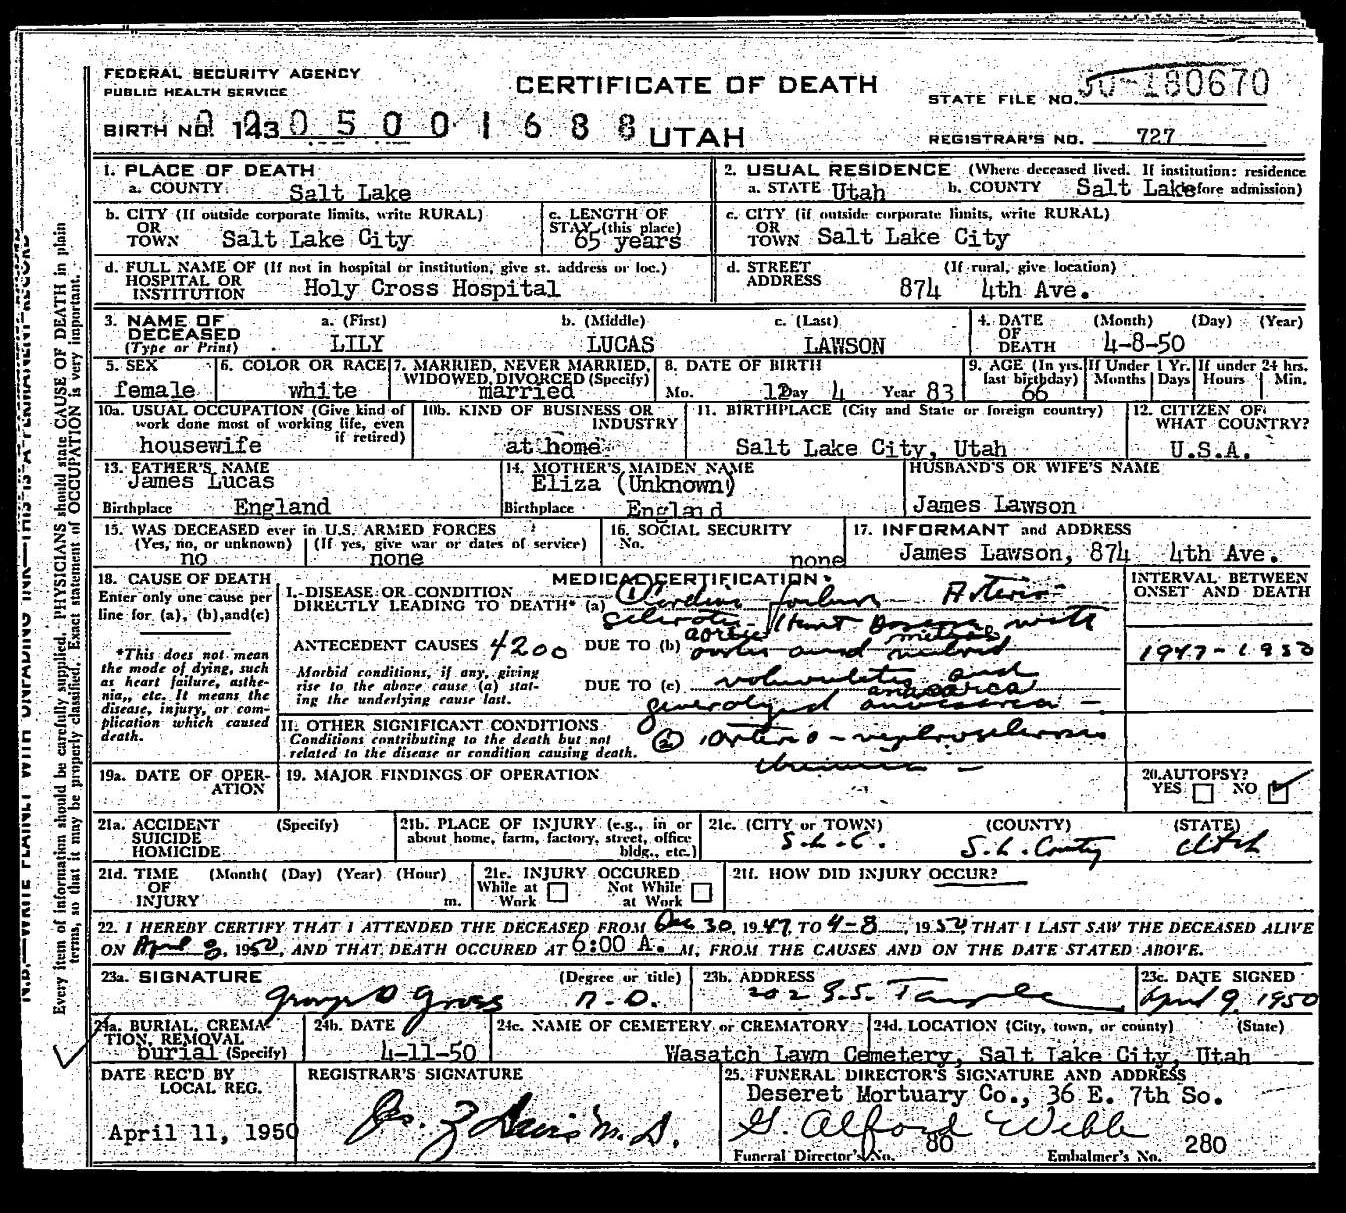 FEDERAL SECURITY AGENCY
PUBLIC HEALTH SERVICE
CERTIFICATE OF DEATH
STATE FILE NO. 50-180670
BIRTH NO. 143 0 5 0 0 1 6 8 8 UTAH
REGISTRAR'S NO. 727
1. PLACE OF DEATH
a. COUNTY Salt Lake
2. USUAL RESIDENCE (Where deceased lived. If institution: residence
a. STATE Utah b. COUNTY Salt Lake before admission)
b. CITY (If outside corporate limits, write RURAL)
OR
TOWN Salt Lake City
c. LENGTH OF
STAY (this place)
65 years
c. CITY (if outside corporate limits, write RURAL)
OR
TOWN Salt Lake City
d. FULL NAME OF (If not in hospital or institution, give st. address or loc.)
HOSPITAL OR
INSTITUTION Holy Cross Hospital
d. STREET (If rural, give location)
ADDRESS 874 4th Ave.
3. NAME OF DECEASED (Type or Print)
a. (First) b. (Middle) c. (Last)
LILY LUCAS LAWSON
4. DATE OF DEATH (Month) (Day) (Year)
4-8-50
5. SEX
female
6. COLOR OR RACE
white
7. MARRIED, NEVER MARRIED,
WIDOWED, DIVORCED (Specify)
married
8. DATE OF BIRTH
Mo. 12 Day 4 Year 83
9. AGE (In yrs. last birthday)
66
If Under 1 Yr. Months Days
If under 24 hrs. Hours Min.
10a. USUAL OCCUPATION (Give kind of
work done most of working life, even
if retired)
housewife
10b. KIND OF BUSINESS OR
INDUSTRY
at home
11. BIRTHPLACE (City and State or foreign country)
Salt Lake City, Utah
12. CITIZEN OF
WHAT COUNTRY?
U.S.A.
13. FATHER'S NAME
James Lucas
Birthplace England
14. MOTHER'S MAIDEN NAME
Eliza (Unknown)
Birthplace England
HUSBAND'S OR WIFE'S NAME
James Lawson
15. WAS DECEASED ever in U.S. ARMED FORCES
(Yes, no, or unknown) (If yes, give war or dates of service)
no none
16. SOCIAL SECURITY
No. none
17. INFORMANT and ADDRESS
James Lawson, 874 4th Ave.
18. CAUSE OF DEATH
Enter only one cause per
line for (a), (b), and (c)
*This does not mean
the mode of dying, such
as heart failure, asthe-
nia, etc. It means the
disease, injury, or com-
plication which caused
death.
MEDICAL CERTIFICATION
I. DISEASE OR CONDITION
DIRECTLY LEADING TO DEATH* (a) (1) Cardiac failure Arterio-
sclerotic Heart Disease with
ANTECEDENT CAUSES 4200 DUE TO (b) aortic and mitral
Morbid conditions, if any, giving
rise to the above cause (a) stat-
ing the underlying cause last.
DUE TO (c) valvulitis and
generalized anasarca -
anasarca
II. OTHER SIGNIFICANT CONDITIONS
Conditions contributing to the death but not
related to the disease or condition causing death.
(2) Arterio-nephrosclerosis
Uremia -
INTERVAL BETWEEN
ONSET AND DEATH
1947-1950
19a. DATE OF OPER-
ATION
19. MAJOR FINDINGS OF OPERATION
20. AUTOPSY?
YES NO
21a. ACCIDENT (Specify)
SUICIDE
HOMICIDE
21b. PLACE OF INJURY (e.g., in or
about home, farm, factory, street, office
bldg., etc.)
21c. (CITY or TOWN) (COUNTY) (STATE)
S.L.C. S.L. County Utah
21d. TIME (Month( (Day) (Year) (Hour)
OF
INJURY m.
21e. INJURY OCCURED
While at Work Not While at Work
21f. HOW DID INJURY OCCUR?
22. I HEREBY CERTIFY THAT I ATTENDED THE DECEASED FROM Dec 30, 1947, TO 4-8, 1950 THAT I LAST SAW THE DECEASED ALIVE
ON April 8, 1950, AND THAT DEATH OCCURED AT 6:00 A. M, FROM THE CAUSES AND ON THE DATE STATED ABOVE.
23a. SIGNATURE (Degree or title)
George D Gross M.D.
23b. ADDRESS
202 E.S. Temple
23c. DATE SIGNED
April 9, 1950
24a. BURIAL, CREMA-
TION, REMOVAL
burial (Specify)
24b. DATE
4-11-50
24c. NAME OF CEMETERY or CREMATORY
24d. LOCATION (City, town, or county) (State)
Wasatch Lawn Cemetery, Salt Lake City, Utah
DATE REC'D BY
LOCAL REG.
April 11, 1950
REGISTRAR'S SIGNATURE
M.D.
25. FUNERAL DIRECTOR'S SIGNATURE AND ADDRESS
Deseret Mortuary Co., 36 E. 7th So.
G. Alford Webb
Funeral Director's No. 80 Embalmer's No. 280
Every item of information should be carefully supplied. PHYSICIANS should state CAUSE OF DEATH in plain
terms, so that it may be properly classified. Exact statement of OCCUPATION is very important.